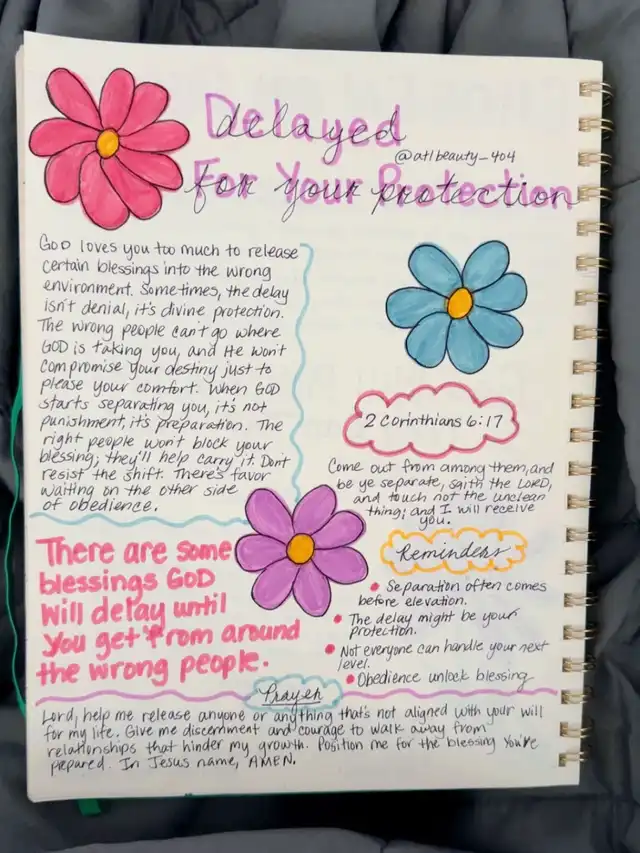 Delayed
@atlbeauty_404
For Your Protection
GOD loves you too much to release
certain blessings into the wrong
environment. Sometimes, the delay
isn't denial, it's divine protection.
The wrong people can't go where
GOD is taking you, and He won't
compromise your destiny just to
please your comfort. When GOD
starts separating you, it's not
punishment, it's preparation. The
right people won't block your
blessing; they'll help carry it. Don't
resist the shift. There's favor
waiting on the other side
of obedience.
2 Corinthians 6:17
Come out from among them, and
be ye separate, saith the LORD,
and touch not the unclean
thing; and I will receive
you.
There are some
blessings GOD
will delay until
you get from around
the wrong people.
Reminders
• Separation often comes
before elevation.
• The delay might be your
protection.
• Not everyone can handle your next
level.
• Obedience unlock blessing
Prayer
Lord, help me release anyone or anything that's not aligned with your will
for my life. Give me discernment and courage to walk away from
relationships that hinder my growth. Position me for the blessing You've
prepared. In Jesus name, AMEN.